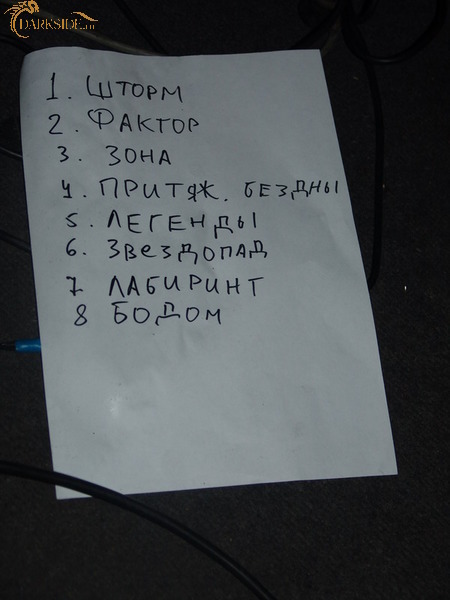 DARKSIDE.ru
1. ШТОРМ
2. ФАКТОР
3. ЗОНА
4. ПРИТЯЖ. БЕЗДНЫ
5. ЛЕГЕНДЫ
6. ЗВЕЗДОПАД
7 ЛАБИРИНТ
8 БОДОМ